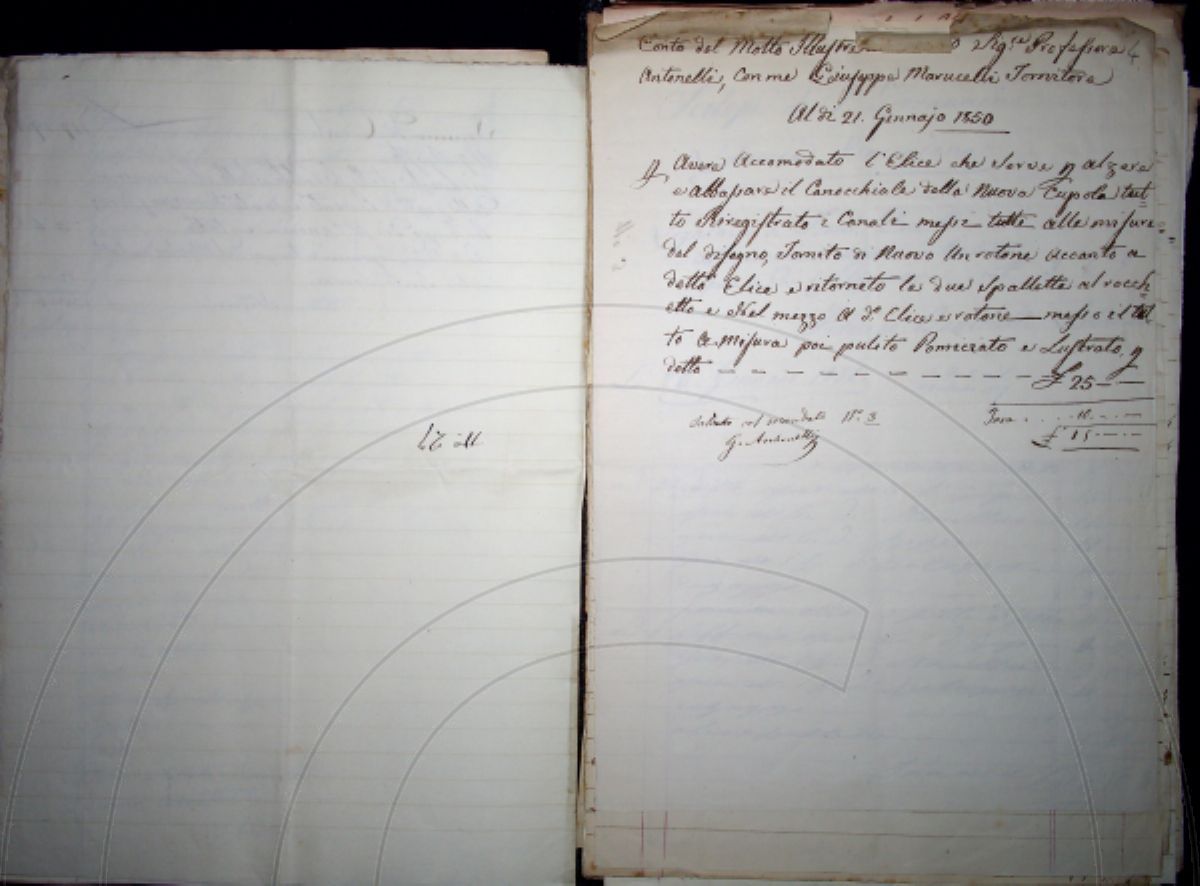 Conto del Molto Illustre o Sig.re Professore
Antonelli, con me Giuseppe Marucelli Tornitore
Al di 21. Gennajo 1850
Avere Accomodato l'Elice che serve p alzare
e abbassare il Canocchiale della Nuova Cupola tut=
to Riregistrato i Canali messi tutti alle misure
del disegno, Tornito di Nuovo Un rotone accanto a
detto Elice e ritorneto le due Spallette al rocch=
etto e Nel mezzo A do. Elice e rotone messo il tut=
to a Misura poi pulito Pomiciato e Lustrato, p
detto — — — — — — — — — — £ 25 — —
Saldato col mandato No. 3
G. Antonelli
Tara . . . 10. — . —
£ 15 — . —